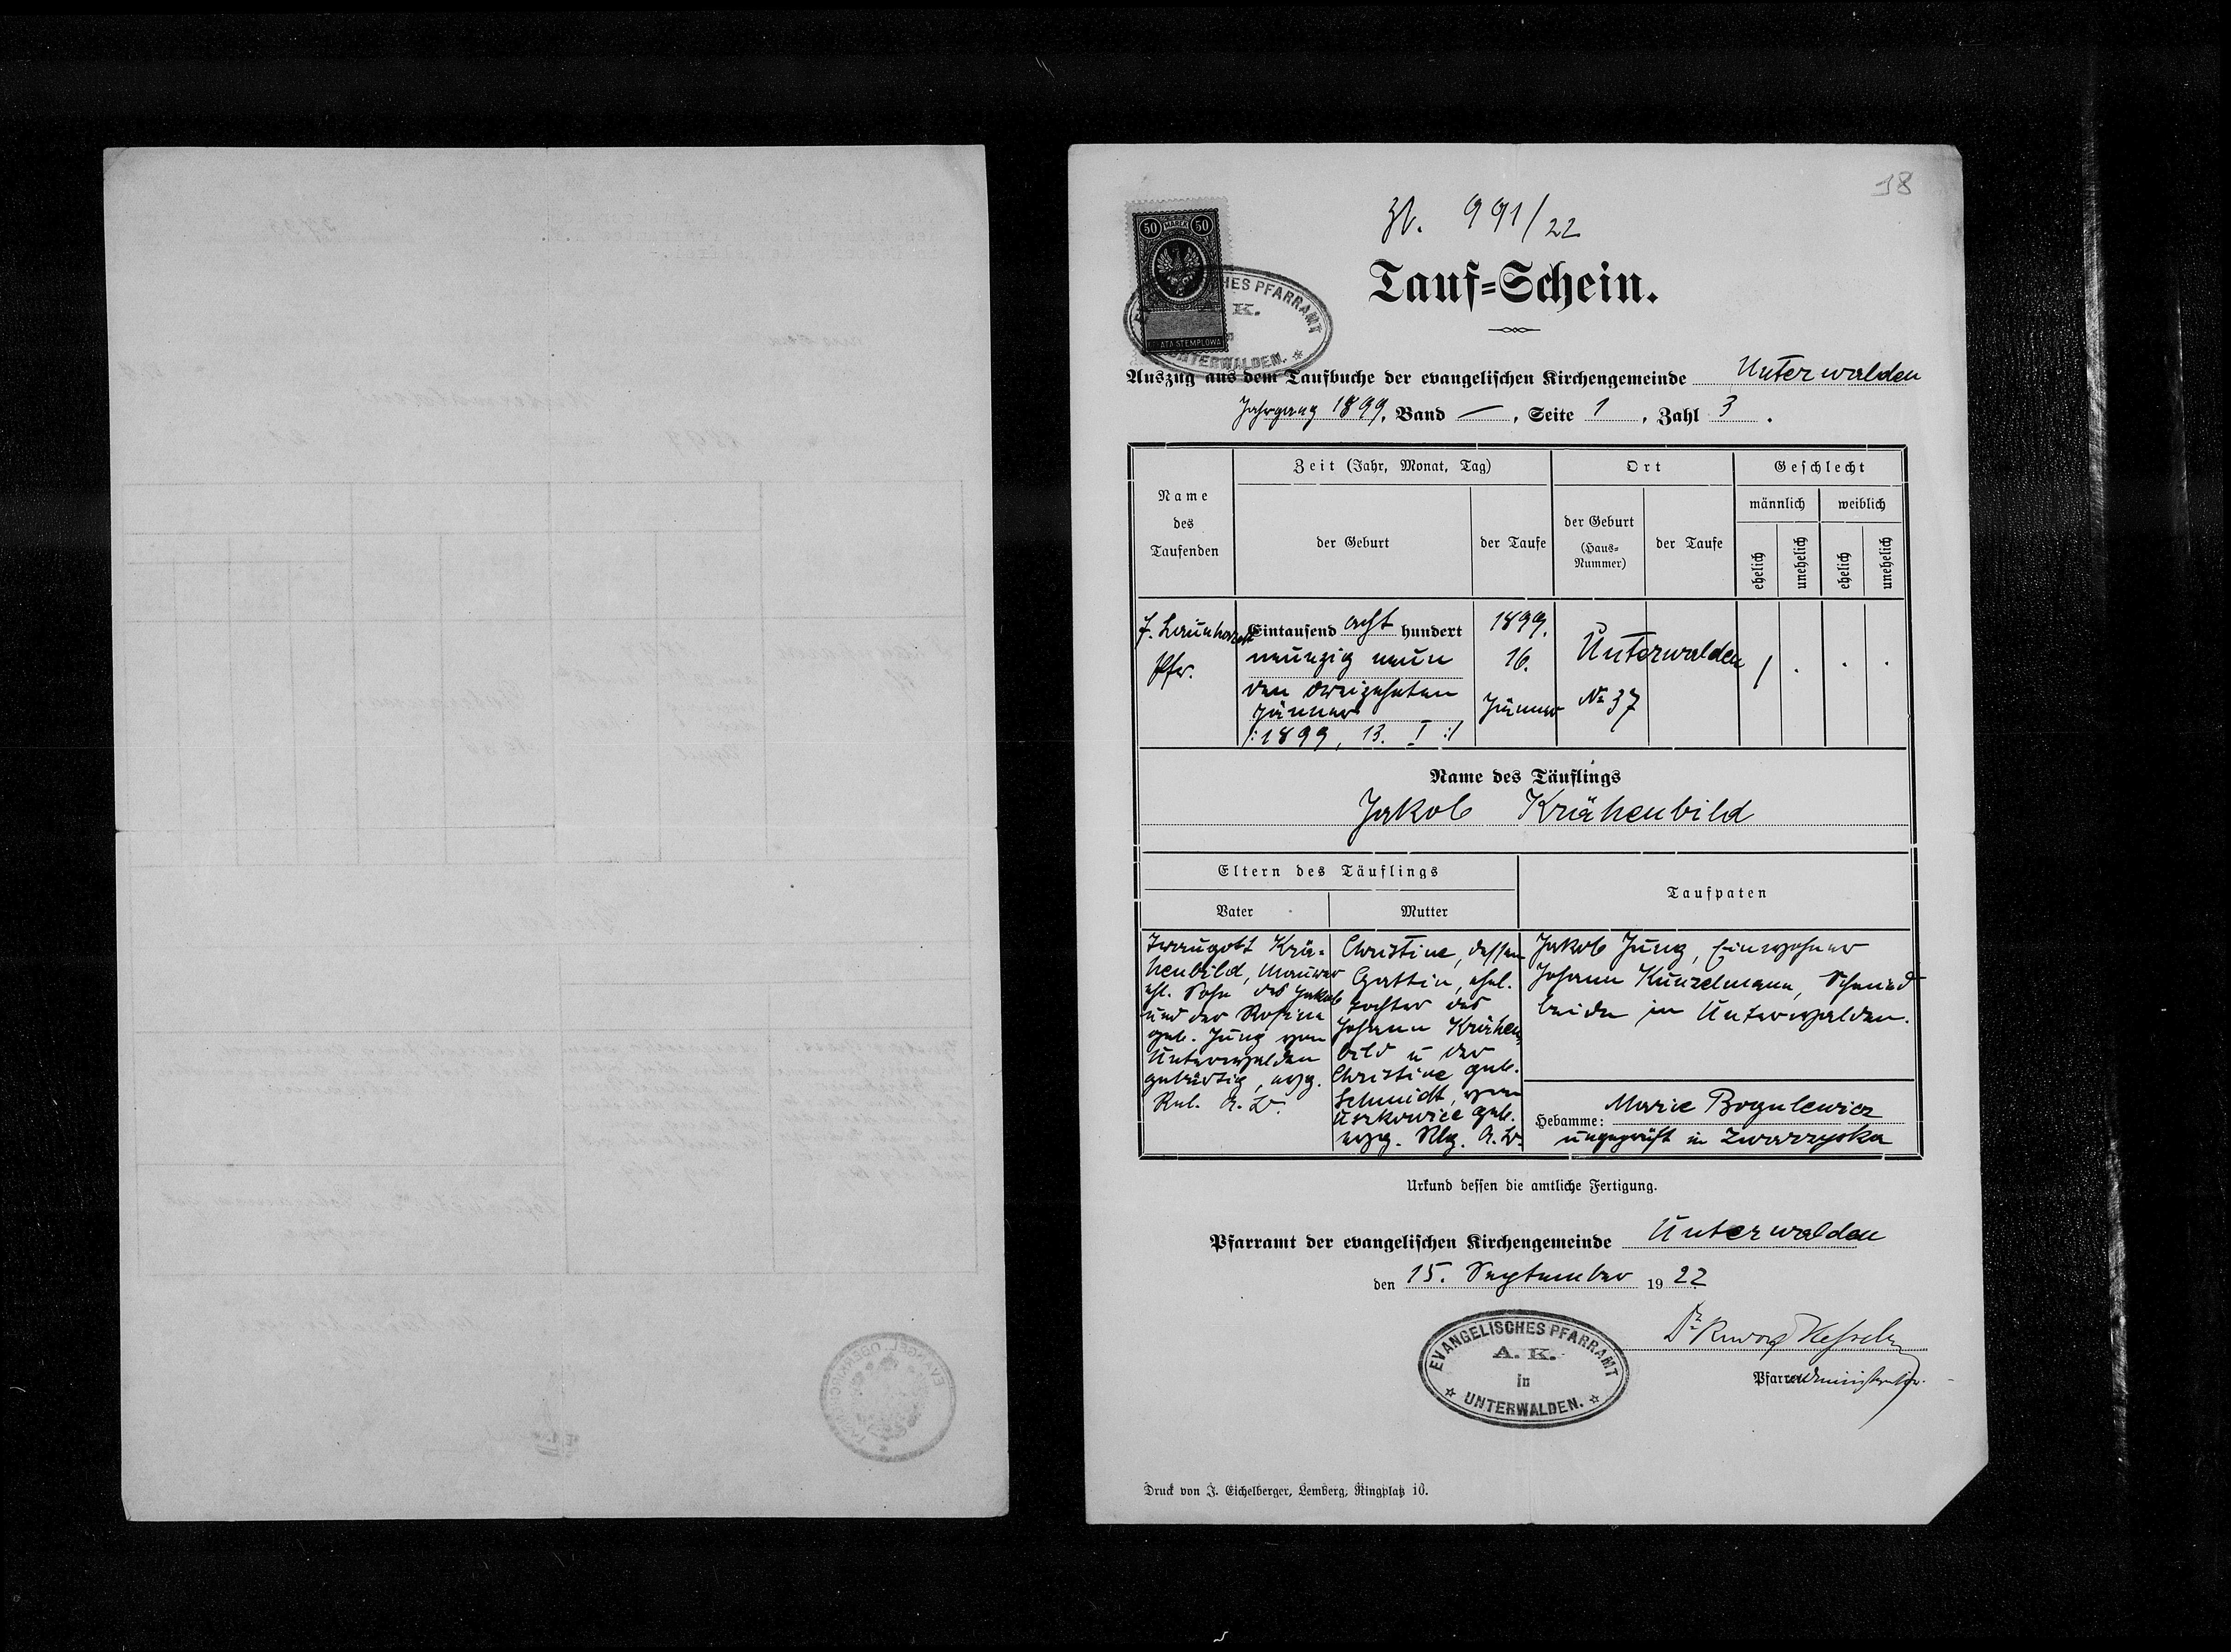 38
Zl. 991/22
50 MAREK 50
OPŁATA STEMPLOWA
EVANGELISCHES PFARRAMT
A. K.
in
UNTERWALDEN.
Tauf=Schein.
Auszug aus dem Taufbuche der evangelischen Kirchengemeinde Unterwalden
Jahrgang 1899, Band —, Seite 1, Zahl 3.
Name des Taufenden
Zeit (Jahr, Monat, Tag)
Ort
Geschlecht
männlich
weiblich
der Geburt
der Taufe
der Geburt (Haus=Nummer)
der Taufe
ehelich
unehelich
ehelich
unehelich
J. Launhardt
Pfr.
Eintausend acht hundert
neunzig neun
den dreizehnten
Jänner
/: 1899, 13. I :/
1899.
16.
Jänner
Unterwalden
№ 37
1 . . .
Name des Täuflings
Jakob Krähenbild
Eltern des Täuflings
Taufpaten
Vater
Mutter
Traugott Krä-
henbild, Maurer
ehl. Sohn des Jakob
und der Rosina
geb. Jung von
Unterwalden
gebürtig, evg.
Rel. A. B.
Christine, dessen
Gattin, ehel.
Tochter des
Johann Krähen-
bild u der
Christine geb.
Schmidt, von
Uszkowice geb.
evg. Rlg. A. B.
Jakob Jung, Einwohner
Johann Kunzelmann, Schmied
beide in Unterwalden.
Hebamme: Marie Bogulewicz
ungeprüft in Zwarzyska
Urkund dessen die amtliche Fertigung.
Pfarramt der evangelischen Kirchengemeinde Unterwalden
den 15. September 1922
EVANGELISCHES PFARRAMT
A. K.
in
UNTERWALDEN.
Dr.
Pfarradministrator.
Druck von J. Eichelberger, Lemberg, Ringplatz 10.